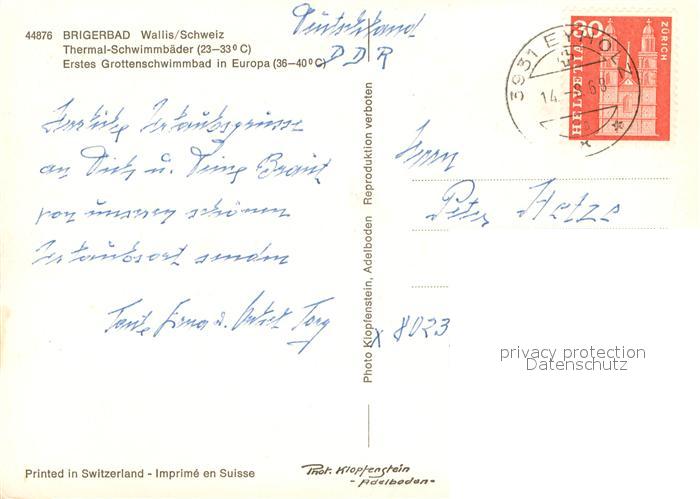 44876 BRIGERBAD Wallis/Schweiz
Thermal-Schwimmbäder (23–33° C)
Erstes Grottenschwimmbad in Europa (36–40° C)
Deutschland
DDR
Herzliche Urlaubsgrüsse
an Dich u. Deine Braut
von unserem schönen
Urlaubsort senden
Tante Erna u. Onkel
Photo Klopfenstein, Adelboden Reproduktion verboten
3931 EYHOLZ
14.
HELVETIA
30
ZÜRICH
Herrn
Peter
x 8023
privacy protection
Datenschutz
Printed in Switzerland - Imprimé en Suisse
Phot. Klopfenstein
- Adelboden -